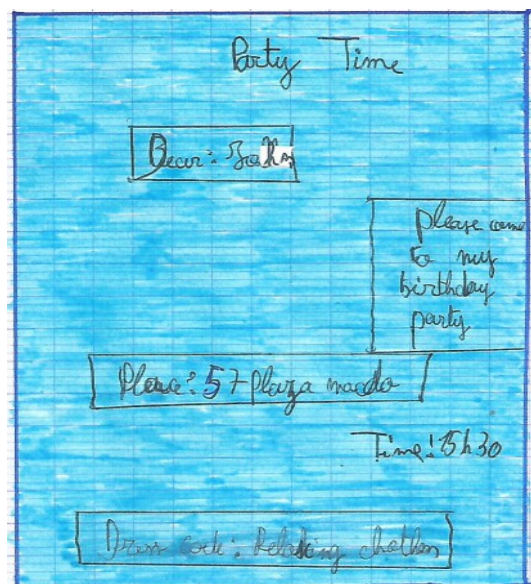 Party Time
Dear: John
please come
to my
birthday
party
Place: 57 plaza macdo
Time: 15h30
Dress code: Relaxing chothes